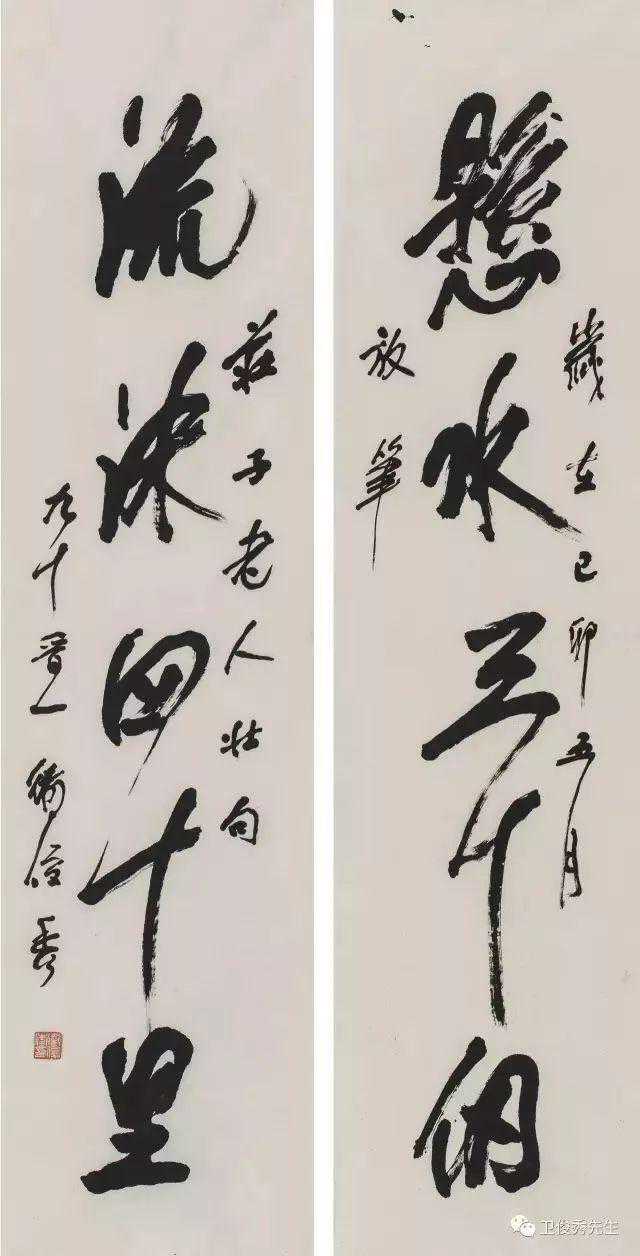 歲在己卯五月
懸水三十仞
放筆
莊子老人壯句
流沫四十里
九十晉一 衛俊秀
卫俊秀先生